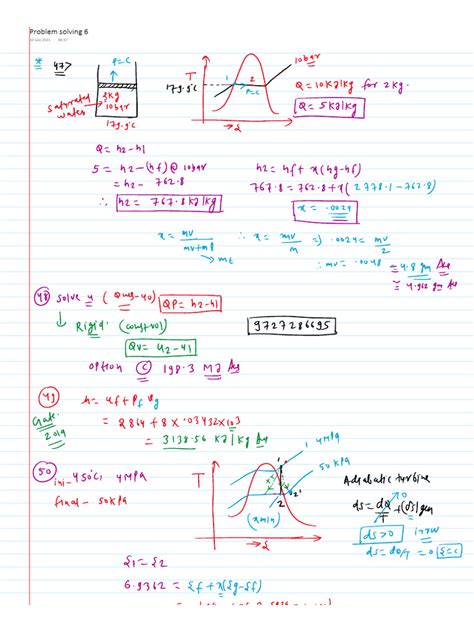 Problem solving 6
* 47>
P=C
10 bar
T
1 2
P=C
179.9°C
Saturated water
2kg
179.9°C
Q = 10 KJ/kg for 2kg.
Q = 5 KJ/kg
Q = h2-h1
5 = h2-(hf)@ 10bar
= h2- 762.8
∴ h2 = 767.8 KJ/kg
h2 = hf + x(hg-hf)
767.8 = 762.8 + x(2778.1-762.8)
x = .0024
x = mv/(mv+ml)
→ mt
∴ x = mv/m => .0024 = mv/2
∴ mv = .0048
= 4.8 gm Ans
≈ 4.962 gm Ans
48 solve 4 (Ques-40) QP = h2-h1
↓ Rigid (const vol)
9727286695
Qv = u2-u1
option (C) 198.3 MJ Ans
49 h = uf + Pf vg
Gate 2019
= 2864 + 8 × .03432 × 10³
= 3138.56 KJ/kg Ans
50 ini - 450°C, 4MPa
final - 50KPa
T
1 4MPa
50KPa
2 2'
(x min)
Adiabatic turbine
ds = dQ/T + (ds)gen
ds>0 irrev
ds = dQ/T = 0 S=C
S1 = S2
6.9362 = Sf + x(Sg-Sf)